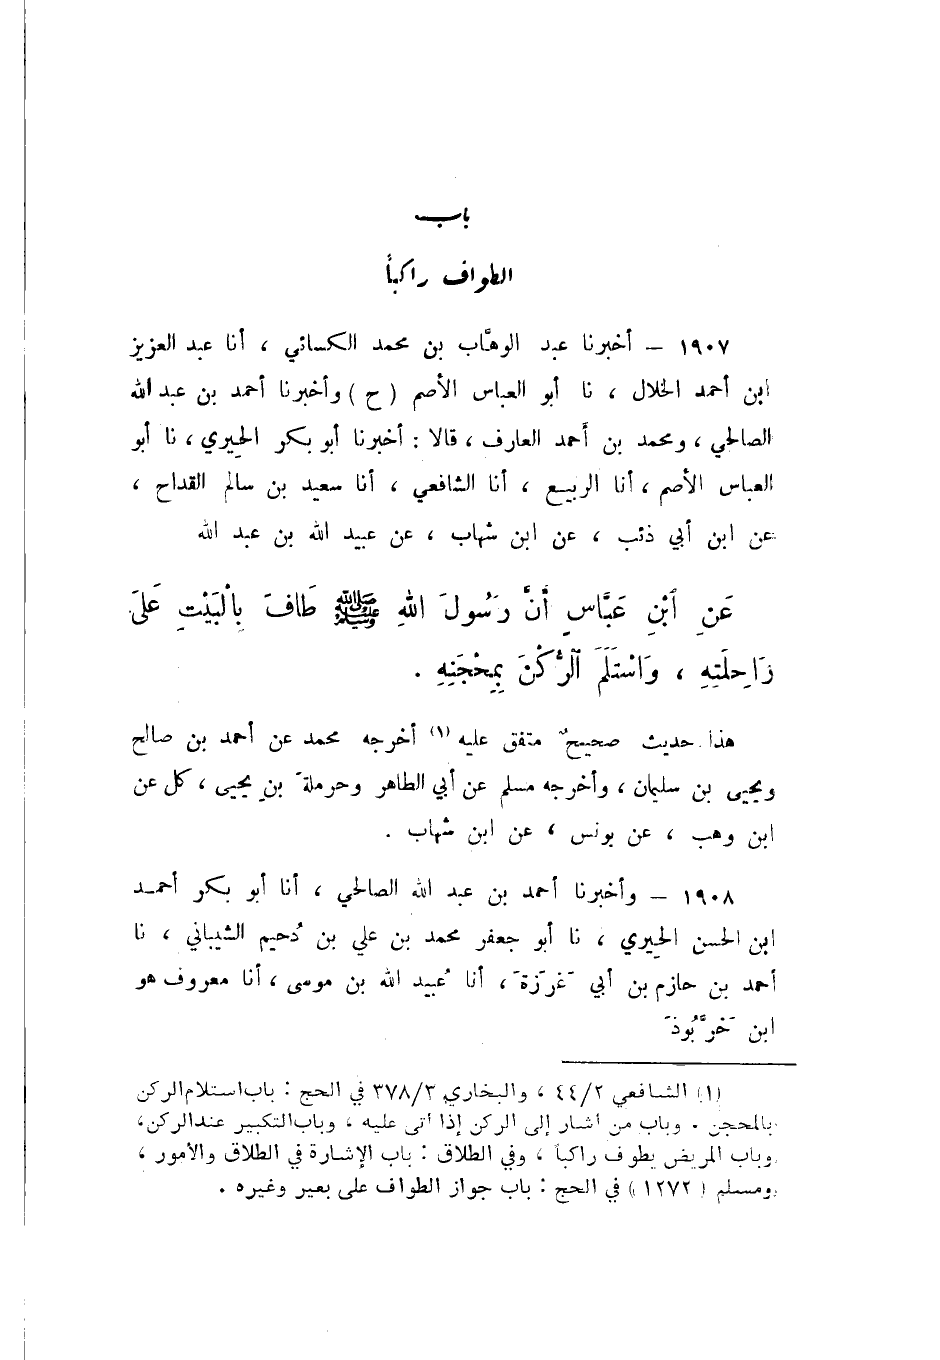 باب
الطواف راكباً
١٩٠٧ – أخبرنا عبد الوهَّاب بن محمد الكسائي ، أنا عبد العزيز
ابن أحمد الخلال ، نا أبو العباس الأصم ( ح ) وأخبرنا أحمد بن عبد الله
الصالحي ، ومحمد بن أحمد العارف ، قالا : أخبرنا أبو بكر الحِيري ، نا أبو
العباس الأصم ، أنا الربيع ، أنا الشافعي ، أنا سعيد بن سالم القداح ،
عن ابن أبي ذئب ، عن ابن شهاب ، عن عبيد الله بن عبد الله
عَنِ ٱبْنِ عَبَّاسٍ أَنَّ رَسُولَ اللهِ ﷺ طَافَ بِالْبَيْتِ عَلَى
رَاحِلَتِهِ ، وَاسْتَلَمَ ٱلرُّكْنَ بِمِحْجَنِهِ .
هذا حديث صحيحٌ متفق عليه (١) أخرجه محمد عن أحمد بن صالح
ويحيى بن سليمان ، وأخرجه مسلم عن أبي الطاهر وحرملةَ بنِ يحيى ، كل عن
ابن وهب ، عن يونس ، عن ابن شهاب .
١٩٠٨ – وأخبرنا أحمد بن عبد الله الصالحي ، أنا أبو بكر أحمد
ابن الحسن الحِيري ، نا أبو جعفر محمد بن علي بن دُحيم الشيباني ، نا
أحمد بن حازم بن أبي غَرَزةَ ، أنا عُبيد الله بن موسى ، أنا معروف هو
ابن خَرَّبُوذَ
(١) الشافعي ٤٤/٢ ، والبخاري ٣٧٨/٣ في الحج : باب استلام الركن
بالمحجن . وباب من أشار إلى الركن إذا أتى عليه ، وباب التكبير عند الركن ،
وباب المريض يطوف راكباً ، وفي الطلاق : باب الإشارة في الطلاق والأمور ،
ومسلم ( ١٢٧٢ ) في الحج : باب جواز الطواف على بعير وغيره .